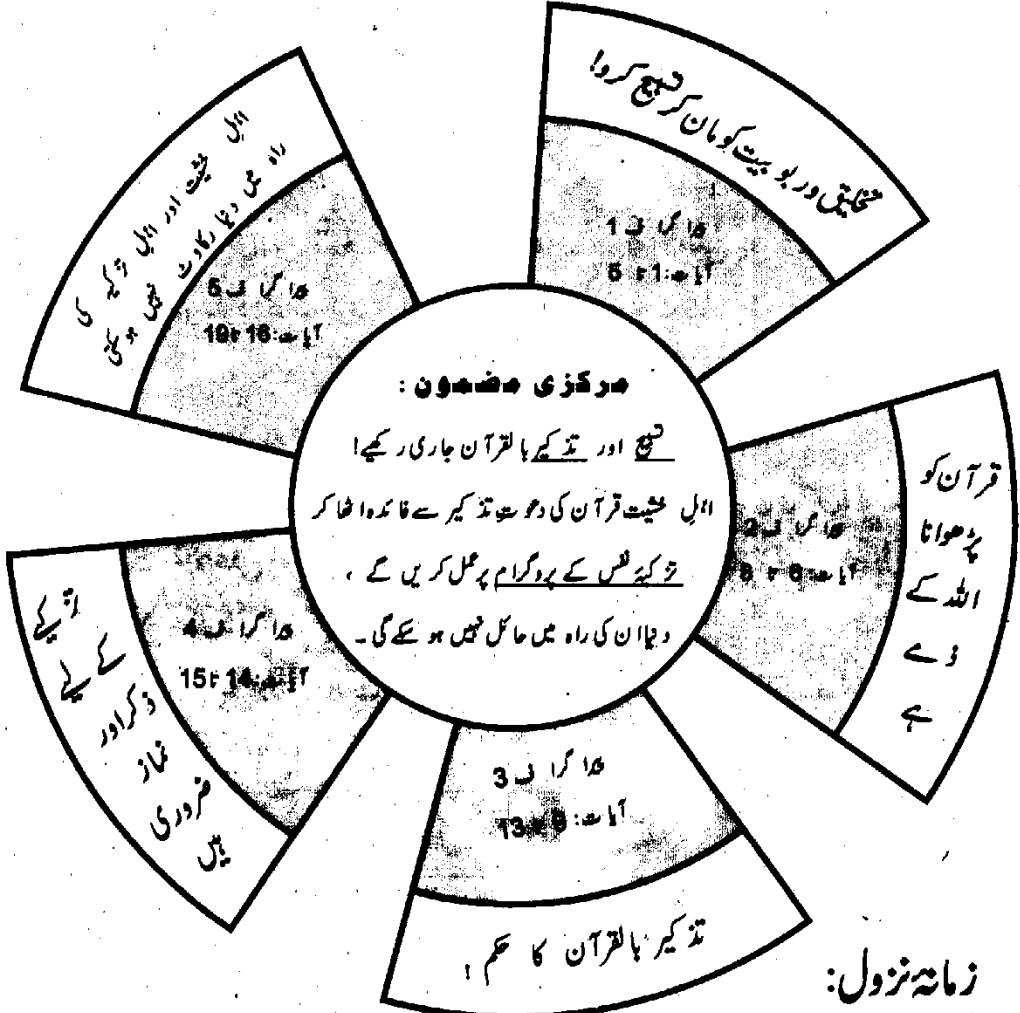 تخلیق و ربوبیت کو مان کر تسبیح کرو!
پیراگراف 1
آیات: 1 تا 5
قرآن کو
پڑھوانا
اللہ کے
ذمے
ہے
پیراگراف 2
آیات: 6 تا 8
پیراگراف 3
آیات: 9 تا 13
تذکیر بالقرآن کا حکم!
تزکیے
کے لیے
ذکر اور
نماز
ضروری
ہیں
پیراگراف 4
آیات: 14 تا 15
اہلِ خشیت اور اہلِ تزکیہ کی
راہ میں دنیا رکاوٹ نہیں ہو سکتی
پیراگراف 5
آیات: 16 تا 19
مرکزی مضمون:
تسبیح اور تذکیر بالقرآن جاری رکھیے!
اہلِ خشیت قرآن کی دعوتِ تذکیر سے فائدہ اٹھا کر
تزکیۂ نفس کے پروگرام پر عمل کریں گے،
دنیا ان کی راہ میں حائل نہیں ہو سکے گی۔
زمانۂ نزول: